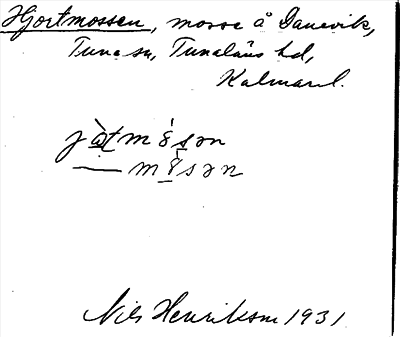 Hjortmossen, mosse å Danevik,
Tuna sn, Tunaläns hd,
Kalmar l.
Nils Henrikson 1931